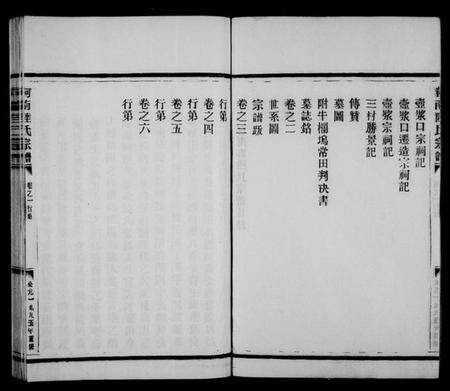 壺漿口宗祠記
壺漿口遷造宗祠記
壺漿宗祠記
三村勝景記
傳贊
墓圖
附牛欄塢常田判決書
墓誌銘
卷之二
世系圖
宗譜跋
卷之三
行第
卷之四
行第
卷之五
行第
卷之六
行第
河南陳氏宗譜
卷之一